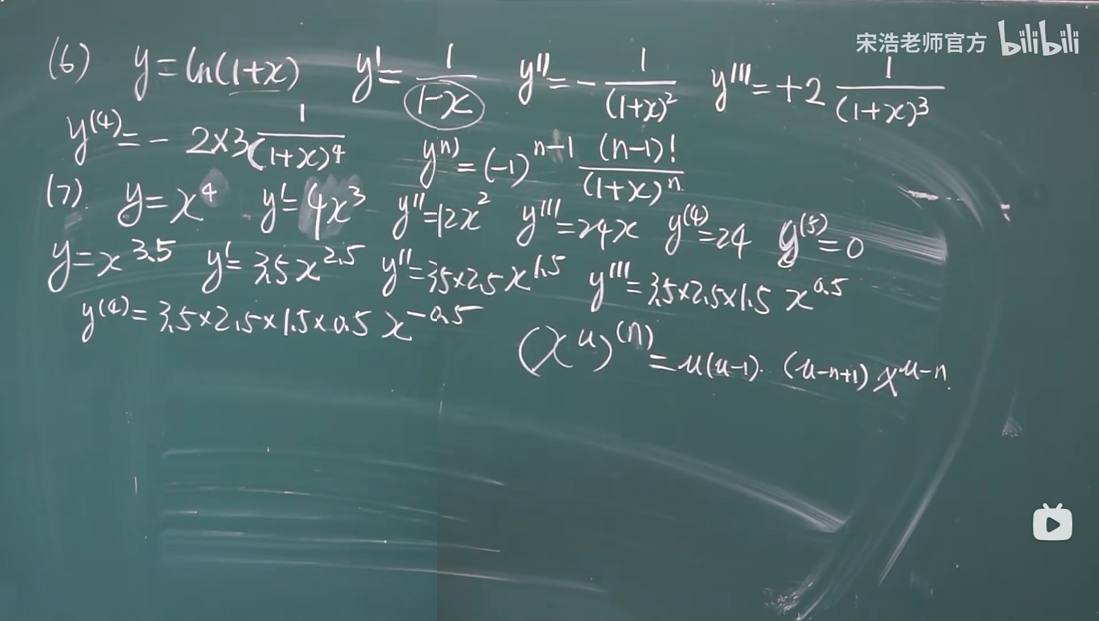 宋浩老师官方 bilibili
(6) y=ln(1+x) y'=1/(1-x) y''=-1/(1+x)² y'''=+2 1/(1+x)³
y⁽⁴⁾=-2×3 1/(1+x)⁴ yⁿ⁾=(-1)ⁿ⁻¹ (n-1)!/(1+x)ⁿ
(7). y=x⁴ y'=4x³ y''=12x² y'''=24x y⁽⁴⁾=24 y⁽⁵⁾=0
y=x^3.5 y'=3.5x^2.5 y''=3.5×2.5x^1.5 y'''=3.5×2.5×1.5 x^0.5
y⁽⁴⁾=3.5×2.5×1.5×0.5 x^-0.5
(x^u)^(n)=u(u-1). (u-n+1)x^u-n.